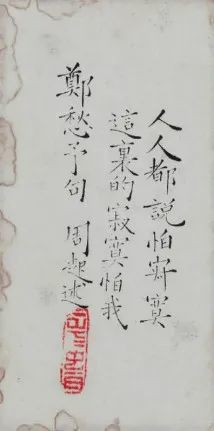 人人都說怕寂寞
這裏的寂寞怕我
鄭愁予句 周起述